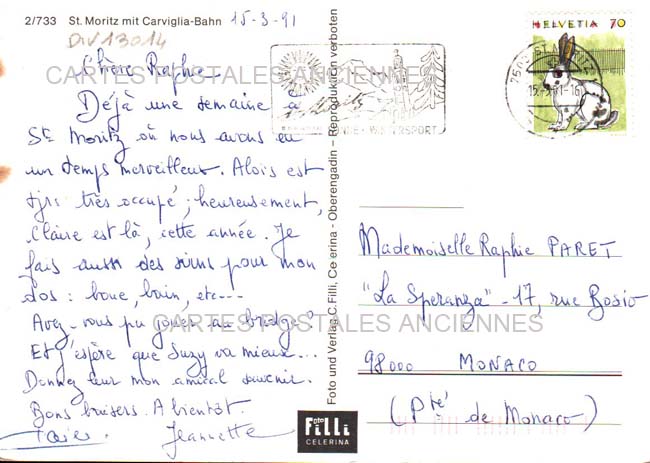 2/733 St. Moritz mit Carviglia-Bahn 15-3-91
DIV13014
Chère Raphie
CARTES POSTALES ANCIENNES
Déjà une semaine à
St Moritz où nous avons eu
un temps merveilleux. Alois est
tjrs très occupé ; heureusement,
Claire est là, cette année. Je
fais aussi des soins pour mon
dos : boue, bain, etc---
Avez-vous pu jouer au bridge?
CARTES POSTALES ANCIENNES
Et j'espère que Suzy va mieux...
Donnez leur mon amical souvenir.
Bons baisers. A bientôt.
Jeannette
Foto und Verlag C. Filli, Celerina - Oberengadin – Reproduktion verboten
foto
filli
CELERINA
WINTERSPORT
HELVETIA 70
Mademoiselle Raphie PARET
"La Speranza" - 17, rue Bosio
98000 MONACO
(Pté de Monaco)